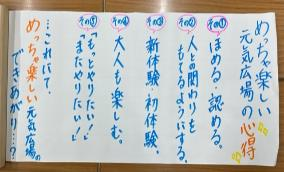 めっちゃ楽しい
元気広場の心得
その①
ほめる・認める。
その②
人との関わりを
もてるようにする。
その③
新体験・初体験。
その④
大人も楽しむ。
その⑤
「もっとやりたい!」
「またやりたい!」
…これにて、
めっちゃ楽しい元気広場の
できあがり…?